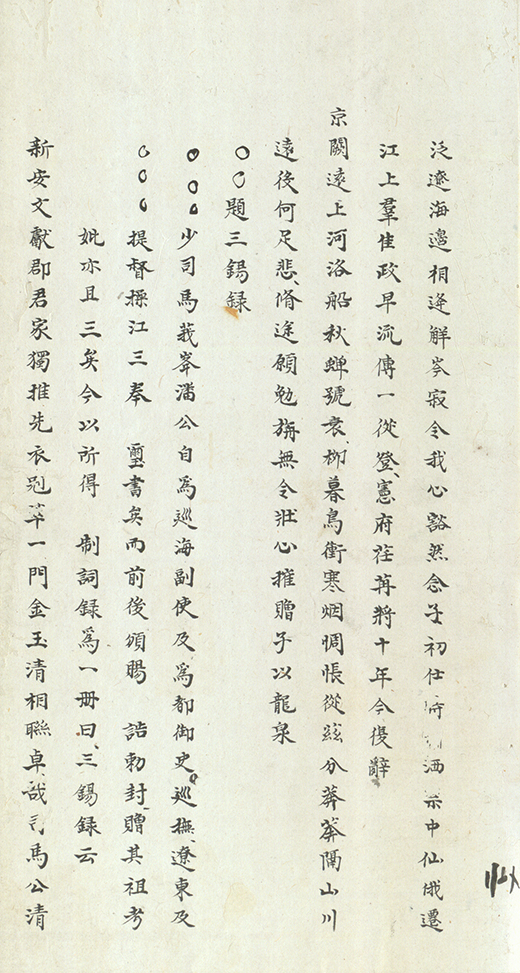 泛遼海邊相逢解岑寂令我心豁然念子初仕 洒 中仙俄遷
江上羣佳政早流傳一從登憲府荏苒將十年今復辭
京闕遠上河洛船秋蟬號衰柳暮鳥衝寒烟惆悵從茲分莽莽隔山川
遠後何足悲脩途願勉旃無令壯心摧贈子以龍泉
○○題三錫録
○○○少司馬莪峯潘公自爲巡海副使及爲都御史巡撫遼東及
○○○提督操江三奉 璽書矣而前後頒賜 誥勅封贈其祖考
妣亦且三矣今以所得 制詞録爲一册曰三錫録云
新安文獻郡君家獨推先衣冠 一門金玉清相聯卓哉司馬公清